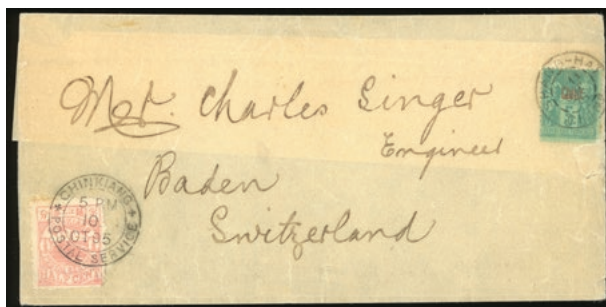 Mr. Charles Singer
Engineer
Baden
Switzerland
CHINKIANG
5 PM
10
OT 95
POSTAL SERVICE
HALF CENT